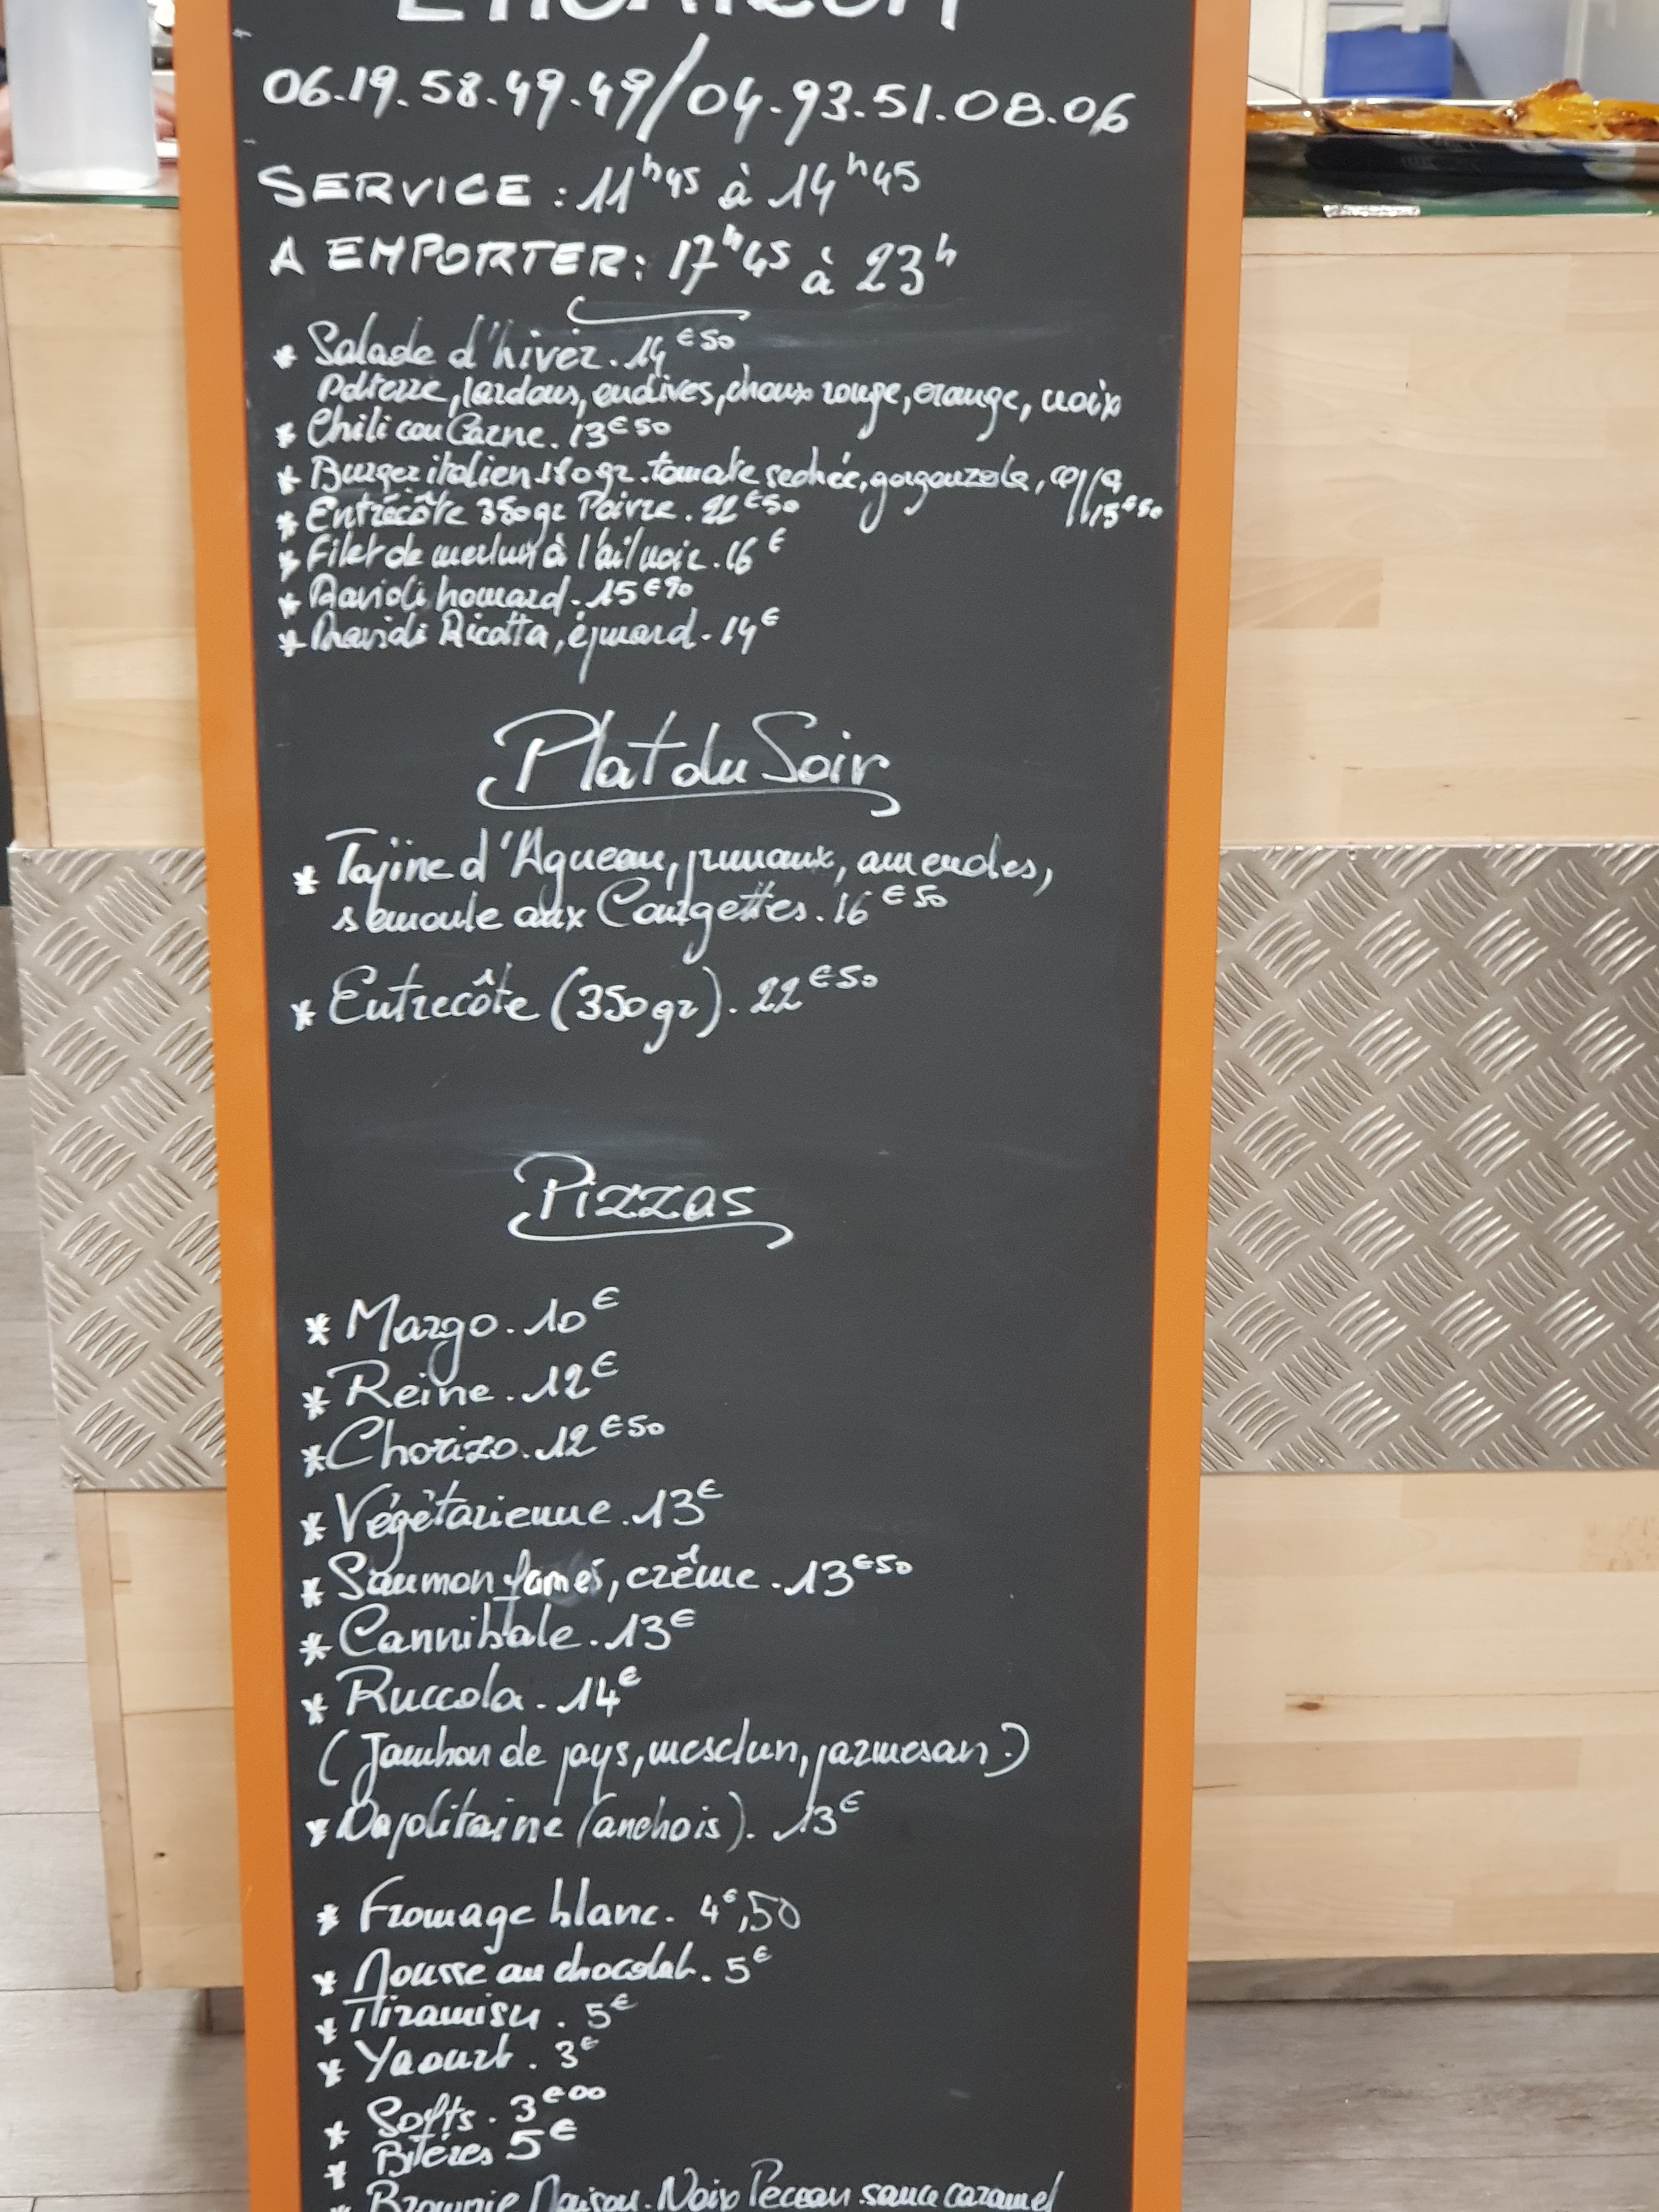 06.19.58.49.49/04.93.51.08.06
SERVICE : 11h45 à 14h45
A EMPORTER : 17h45 à 23h
* Salade d'hiver. 14€50
P.de terre, lardons, endives, choux rouge, orange, noix
* Chili con Carne. 13€50
* Burger italien 180gr. tomate sechée, gorgonzola, coppa
15€50
* Entrecôte 350gr Poivre. 22€50
* Filet de merlun à l'ail noir. 16€
* Ravioli homard. 15€90
* Ravioli Ricotta, épinard. 14€
Plat du Soir
* Tajine d'Agneau, pruneaux, amendes,
semoule aux Courgettes. 16€50
* Entrecôte (350gr). 22€50
Pizzas
* Margo. 10€
* Reine. 12€
* Chorizo. 12€50
* Végétarienne. 13€
* Saumon fumés, crême. 13€50
* Cannibale. 13€
* Ruccola. 14€
(Jambon de pays, mesclun, parmesan.)
* Napolitaine (anchois). 13€
* Fromage blanc. 4€,50
* Mousse au chocolat. 5€
* Tiramisu. 5€
* Yaourt. 3€
* Softs. 3€00
* Bières 5€
* Brownie Maison. Noix Peccan. sauce caramel